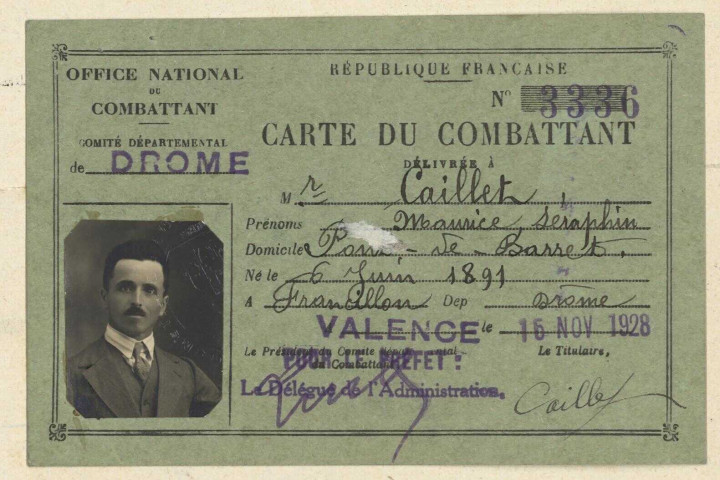 OFFICE NATIONAL
DU
COMBATTANT
COMITÉ DÉPARTEMENTAL
de DROME
RÉPUBLIQUE FRANÇAISE
N° 3336
CARTE DU COMBATTANT
DÉLIVRÉE À
Mr Caillet
Prénoms Maurice, Séraphin
Domicile Pont-de-Barret.
Né le 6 Juin 1891
A Francillon Dep Drôme
VALENCE le 16 NOV 1928
Le Président du Comité départemental
du Combattant
POUR LE PREFET :
Le Délégué de l'Administration.
Le Titulaire,
Caillet